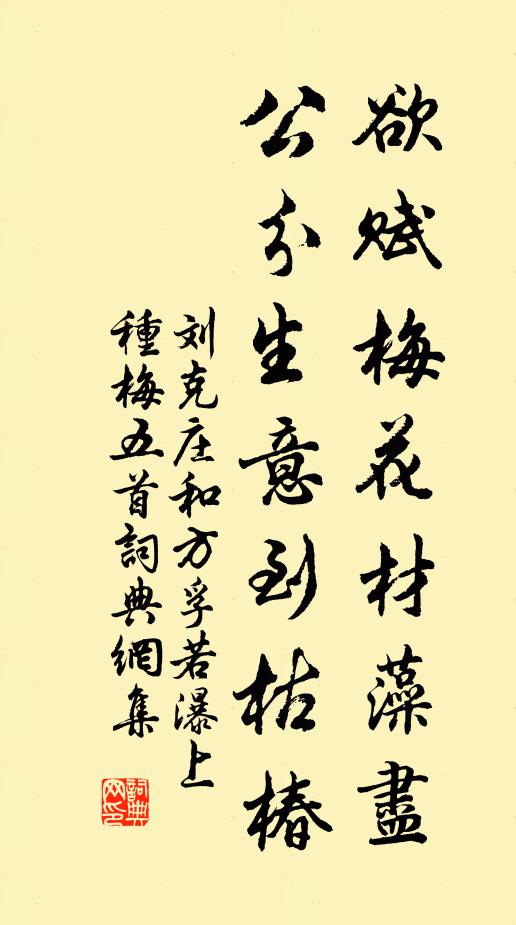 欲赋梅花材藻盡
公分生意到枯椿
刘克庄和方孚若瀑上
種梅五首詞典網集
詞典网印